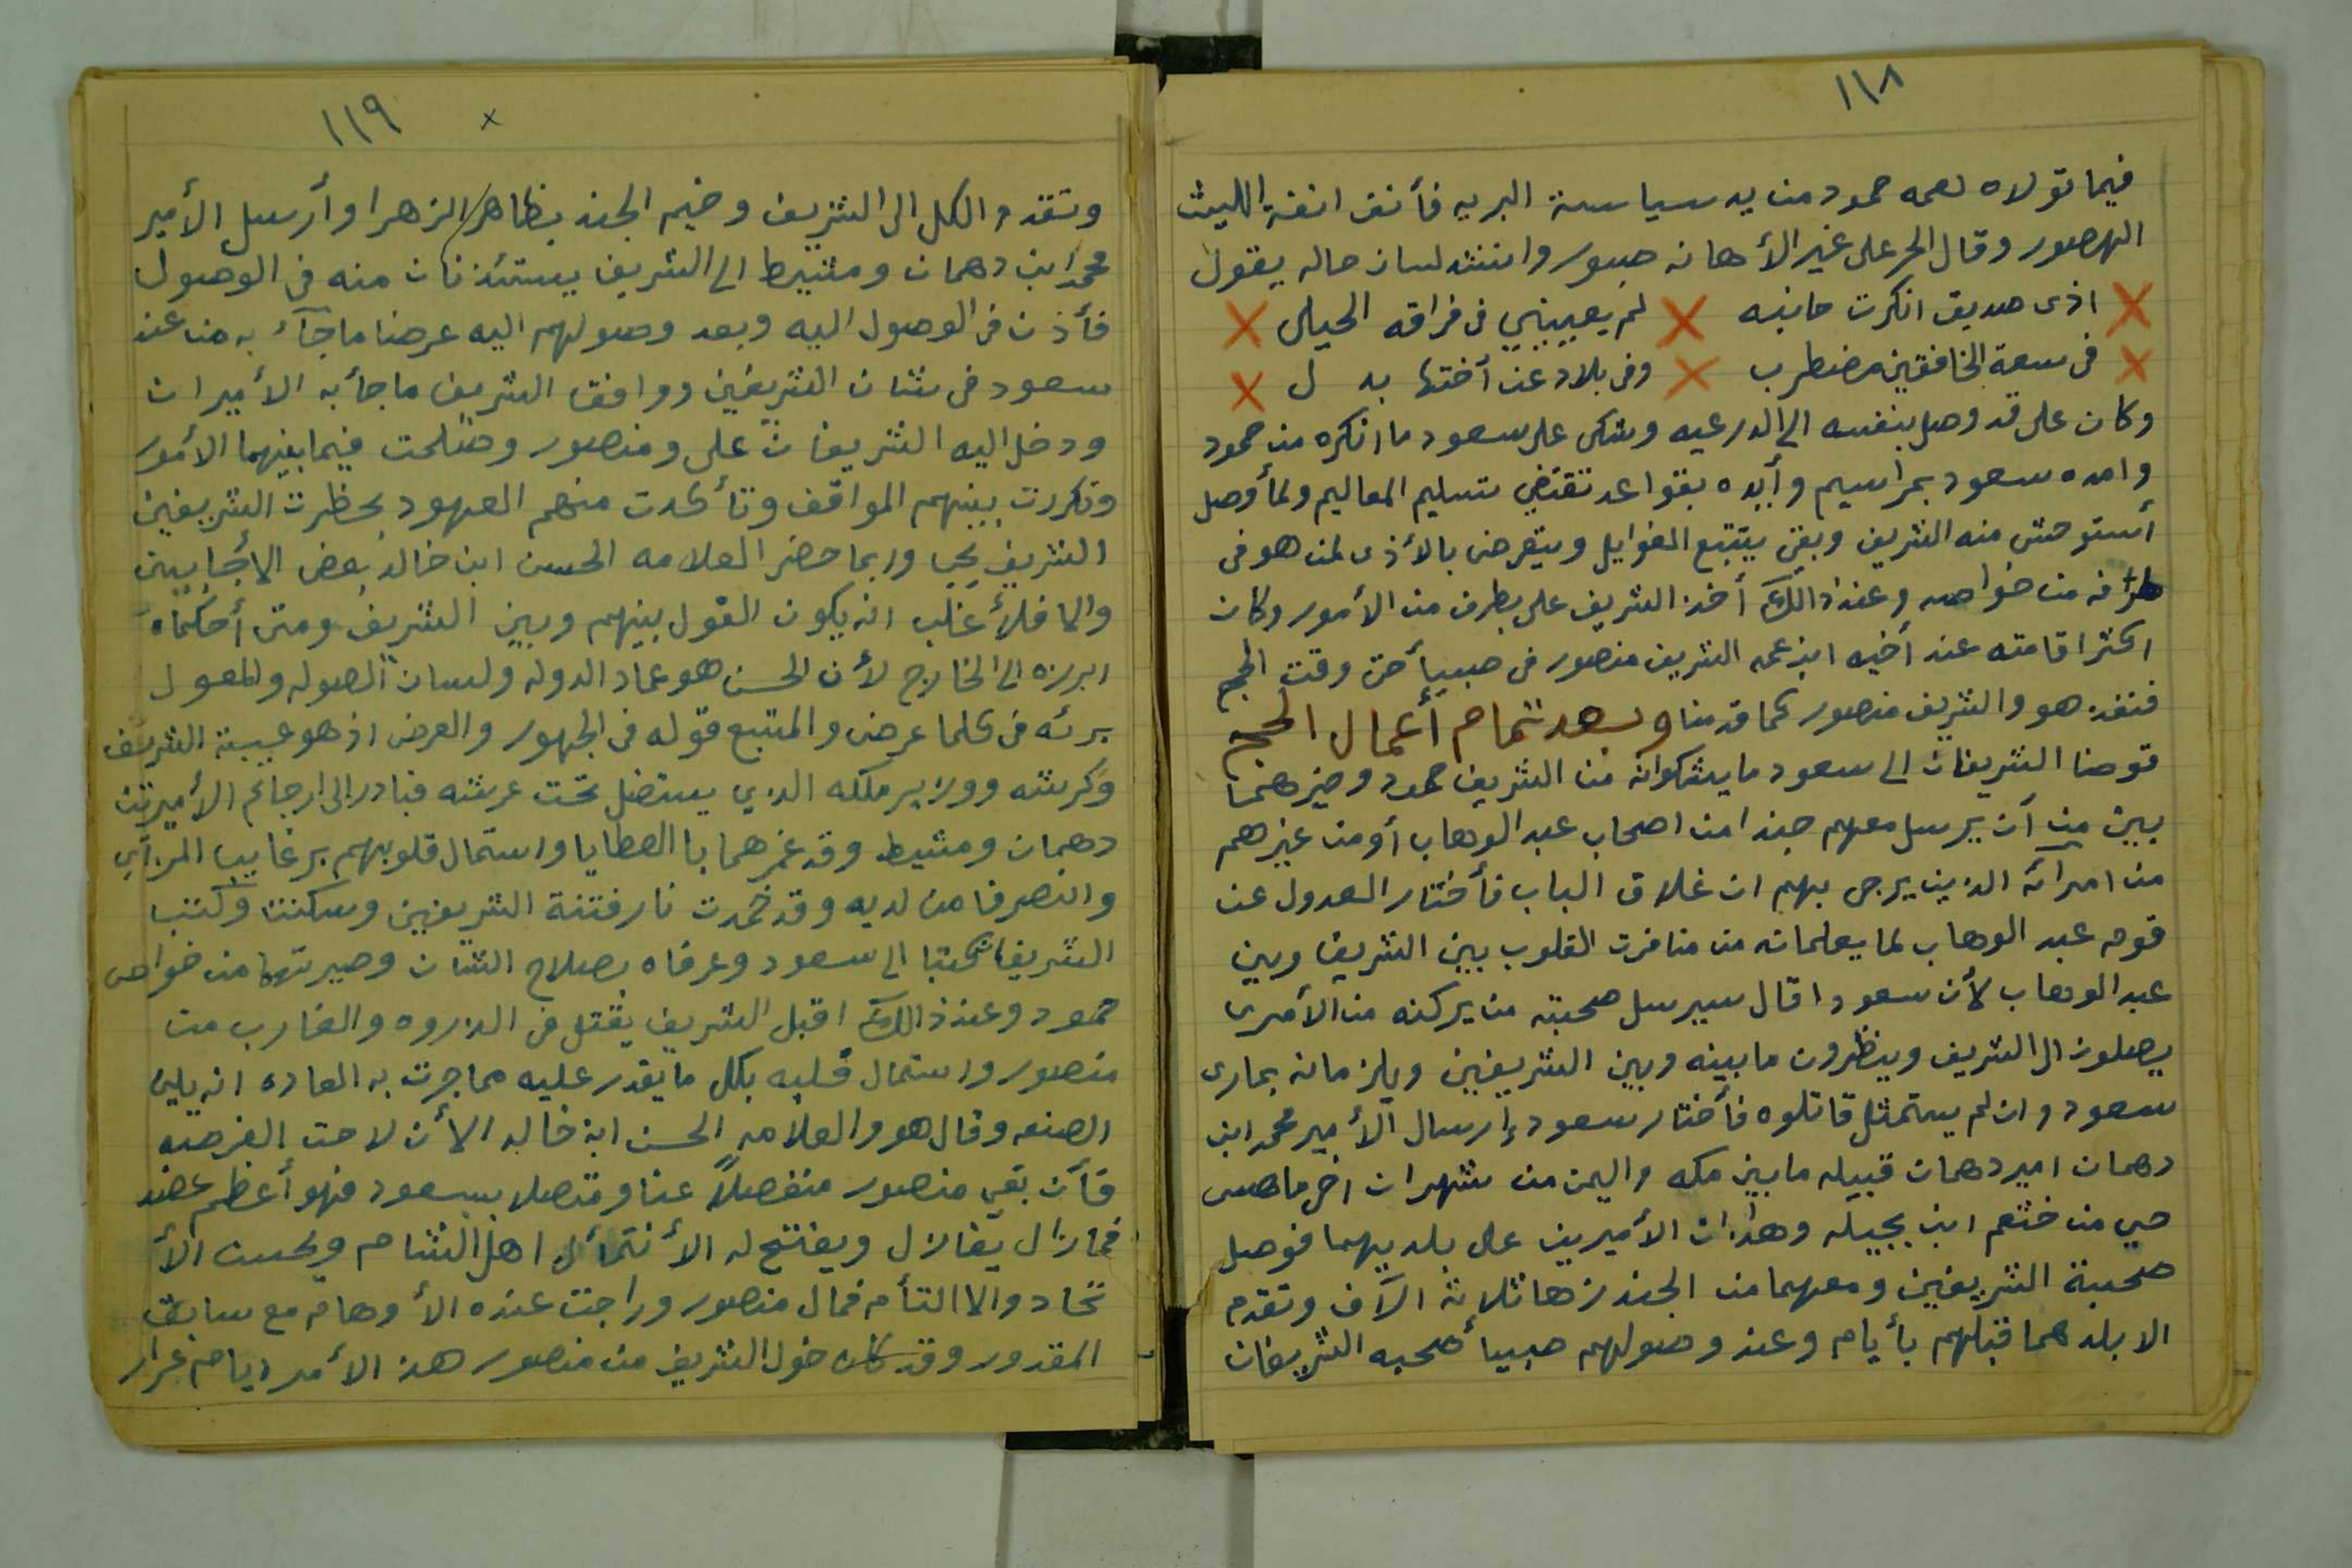 ١١٨
فيما تولاه لعمه حمود من يد سياسة البريه فأنف انفة الليث
الهصور وقال الحر على غير الأهانه صبور وانشد لسان حاله يقول
اذى صديق انكرت جانبه لم يعييني في فراقه الحيل
في سعة الخافقين مضطرب وفي بلاد عن أختها بد ل
وكان على قد وصل بنفسه الى الدرعيه وشكى على سعود ما انكره من حمود
وامده سعود بمراسيم وأيده بقواعد تقتضي تسليم المعاليم ولمأ وصل
أستوحش منه الشريف وبقي يتتبع الغوايل ويتعرض بالأذى لمن هو في
طرفه من خواصه وعند ذالك أخذ الشريف على بطرف من الأمور وكان
اكثر اقامته عند أخيه ابن عمه الشريف منصور في صبيأ حتى وقت الحج
فنفذ هو والشريف منصور كما قدمنا وبعد تمام أعمال الحج
قوضا الشريفان الى سعود ما يشكوانه من الشريف حمود وخيرهما
بين من أن يرسل معهم جندا من اصحاب عبد الوهاب أو من غيرهم
من امرآئه الذين يرجى بهم ان غلاق الباب فأختار العدول عن
قوم عبد الوهاب لما يعلمانه من منافرت القلوب بين الشريف وبين
عبد الوهاب لأن سعودا قال سيرسل صحبته من يركنه من الأمرى
يصلون الى الشريف وينظرون ما بينه وبين الشريفين ويلزمانه بمارى
سعود وان لم يستمثل قاتلوه فأختار سعود إرسال الأمير محمد ابن
دهمان امير دهمان قبيله مابين مكه واليمن من شهران
حي من خثعم ابن بجيله وهذان الأميرين على بلديهما فوصل
صحبة الشريفين ومعهما من الجند زها ثلاثة الآف وتقدم
الا بلدهما قبلهم بأيام وعند وصولهم صبيأ صحبه الشريفان
١١٩
وتقدم الكل الى الشريف وخيم الجند بظاهر الزهرا وأرسل الأمير
محمد ابن دهمان ومشيط الى الشريف يستئذنان منه في الوصول
فأذن في الوصول اليه وبعد وصولهم اليه عرضا ما جآء به من عند
سعود في شان الشريفين ووافق الشريف ما جأ به الأميران
ودخل اليه الشريفان على ومنصور وصلحت فيما بينهما الأمور
وتكررت بينهم المواقف وتأكدت منهم العهود بحظرت الشريفين
الشريف يحي وربما حضر العلامه الحسن ابن خالد بعض الأجابين
والا فلأغلب انه يكون القول بينهم وبين الشريف ومتى أحكماه
ابرزه الى الخارج لأن الحسن هو عماد الدوله ولسان الصوله والمعول
برئه في كلما عرض والمتبع قوله في الجهور والعرض اذ هو عيبة الشريف
وكرشه ووزير ملكه الذي يستضل تحت عرشه فبادر الى ارجاع الأميرين
دهمان ومشيط وقد غمرهما با العطايا واستمال قلوبهم برغايب المرآي
وانصرفا من لديه وقد خمدت نار فتنة الشريفين وسكنت وكتب
الشريفان كتبا الى سعود وعرفاه بصلاح الشان وصيرتهما من خواص
حمود وعند ذالك اقبل الشريف يفتل في الذروه والغارب من
منصور واستمال قلبه بكل ما يقدر عليه مما جرت به العاده انه يلين
الصنعه وقال هو والعلامه الحسن ابن خالد الأن لاحت الفرصه
فأن بقي منصور منفصلاً عنا ومتصلا بسعود فهو أعظم عضد
فمازال يغازل ويفتح له الأ اهل الشام ويحسن الأ
تحاد والا التأم فمال منصور وراجت عنده الأوهام مع سابق
المقدور وقد كان خول الشريف من منصور هذ الأمر ايام عرار